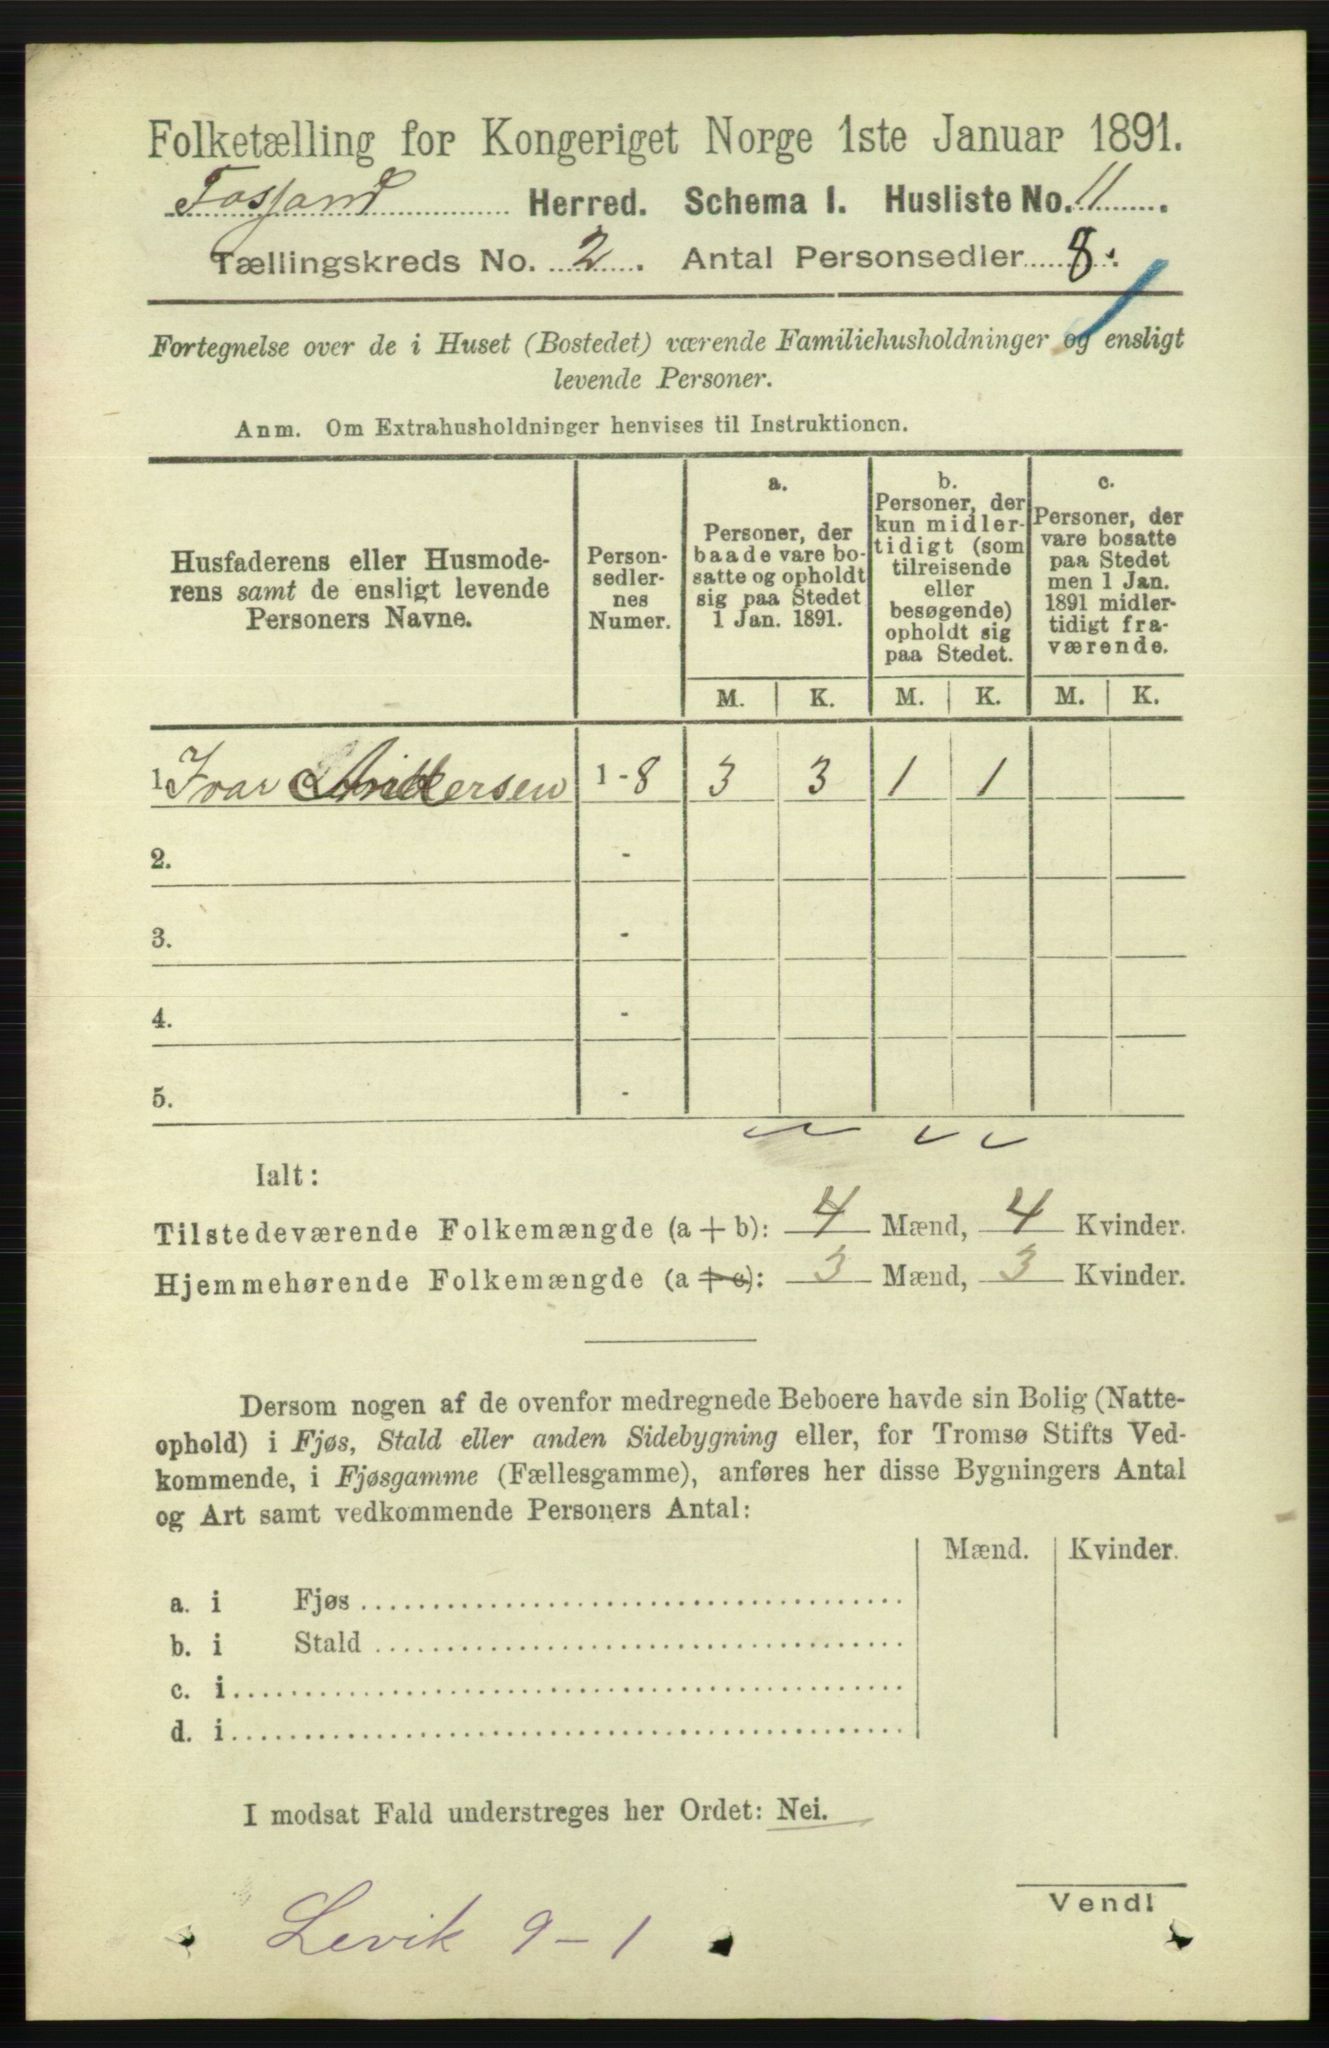 Folketælling for Kongeriget Norge 1ste Januar 1891.
Fossand Herred. Schema I. Husliste No. 11.
Tællingskreds No. 2. Antal Personsedler 8.
Fortegnelse over de i Huset (Bostedet) værende Familiehusholdninger og ensligt
levende Personer.
Anm. Om Extrahusholdninger henvises til Instruktionen.
Husfaderens eller Husmode-
rens samt de ensligt levende
Personers Navne.
Person-
sedler-
nes
Numer.
a.
Personer, der
baade vare bo-
satte og opholdt
sig paa Stedet
1 Jan. 1891.
b.
Personer, der
kun midler-
tidigt (som
tilreisende
eller
besøgende)
opholdt sig
paa Stedet.
c.
Personer, der
vare bosatte
paa Stedet
men 1 Jan.
1891 midler-
tidigt fra-
værende.
M. K. M. K. M. K.
1. Ivar 1 - 8 3 3 1 1
2. -
3. -
4. -
5. -
Ialt:
Tilstedeværende Folkemængde (a + b): 4 Mænd, 4 Kvinder.
Hjemmehørende Folkemængde (a + c): 3 Mænd, 3 Kvinder.
Dersom nogen af de ovenfor medregnede Beboere havde sin Bolig (Natte-
ophold) i Fjøs, Stald eller anden Sidebygning eller, for Tromsø Stifts Ved-
kommende, i Fjøsgamme (Fællesgamme), anføres her disse Bygningers Antal
og Art samt vedkommende Personers Antal:
Mænd. Kvinder.
a. i Fjøs
b. i Stald
c. i
d. i
I modsat Fald understreges her Ordet: Nei.
Vend!
Levik 9-1